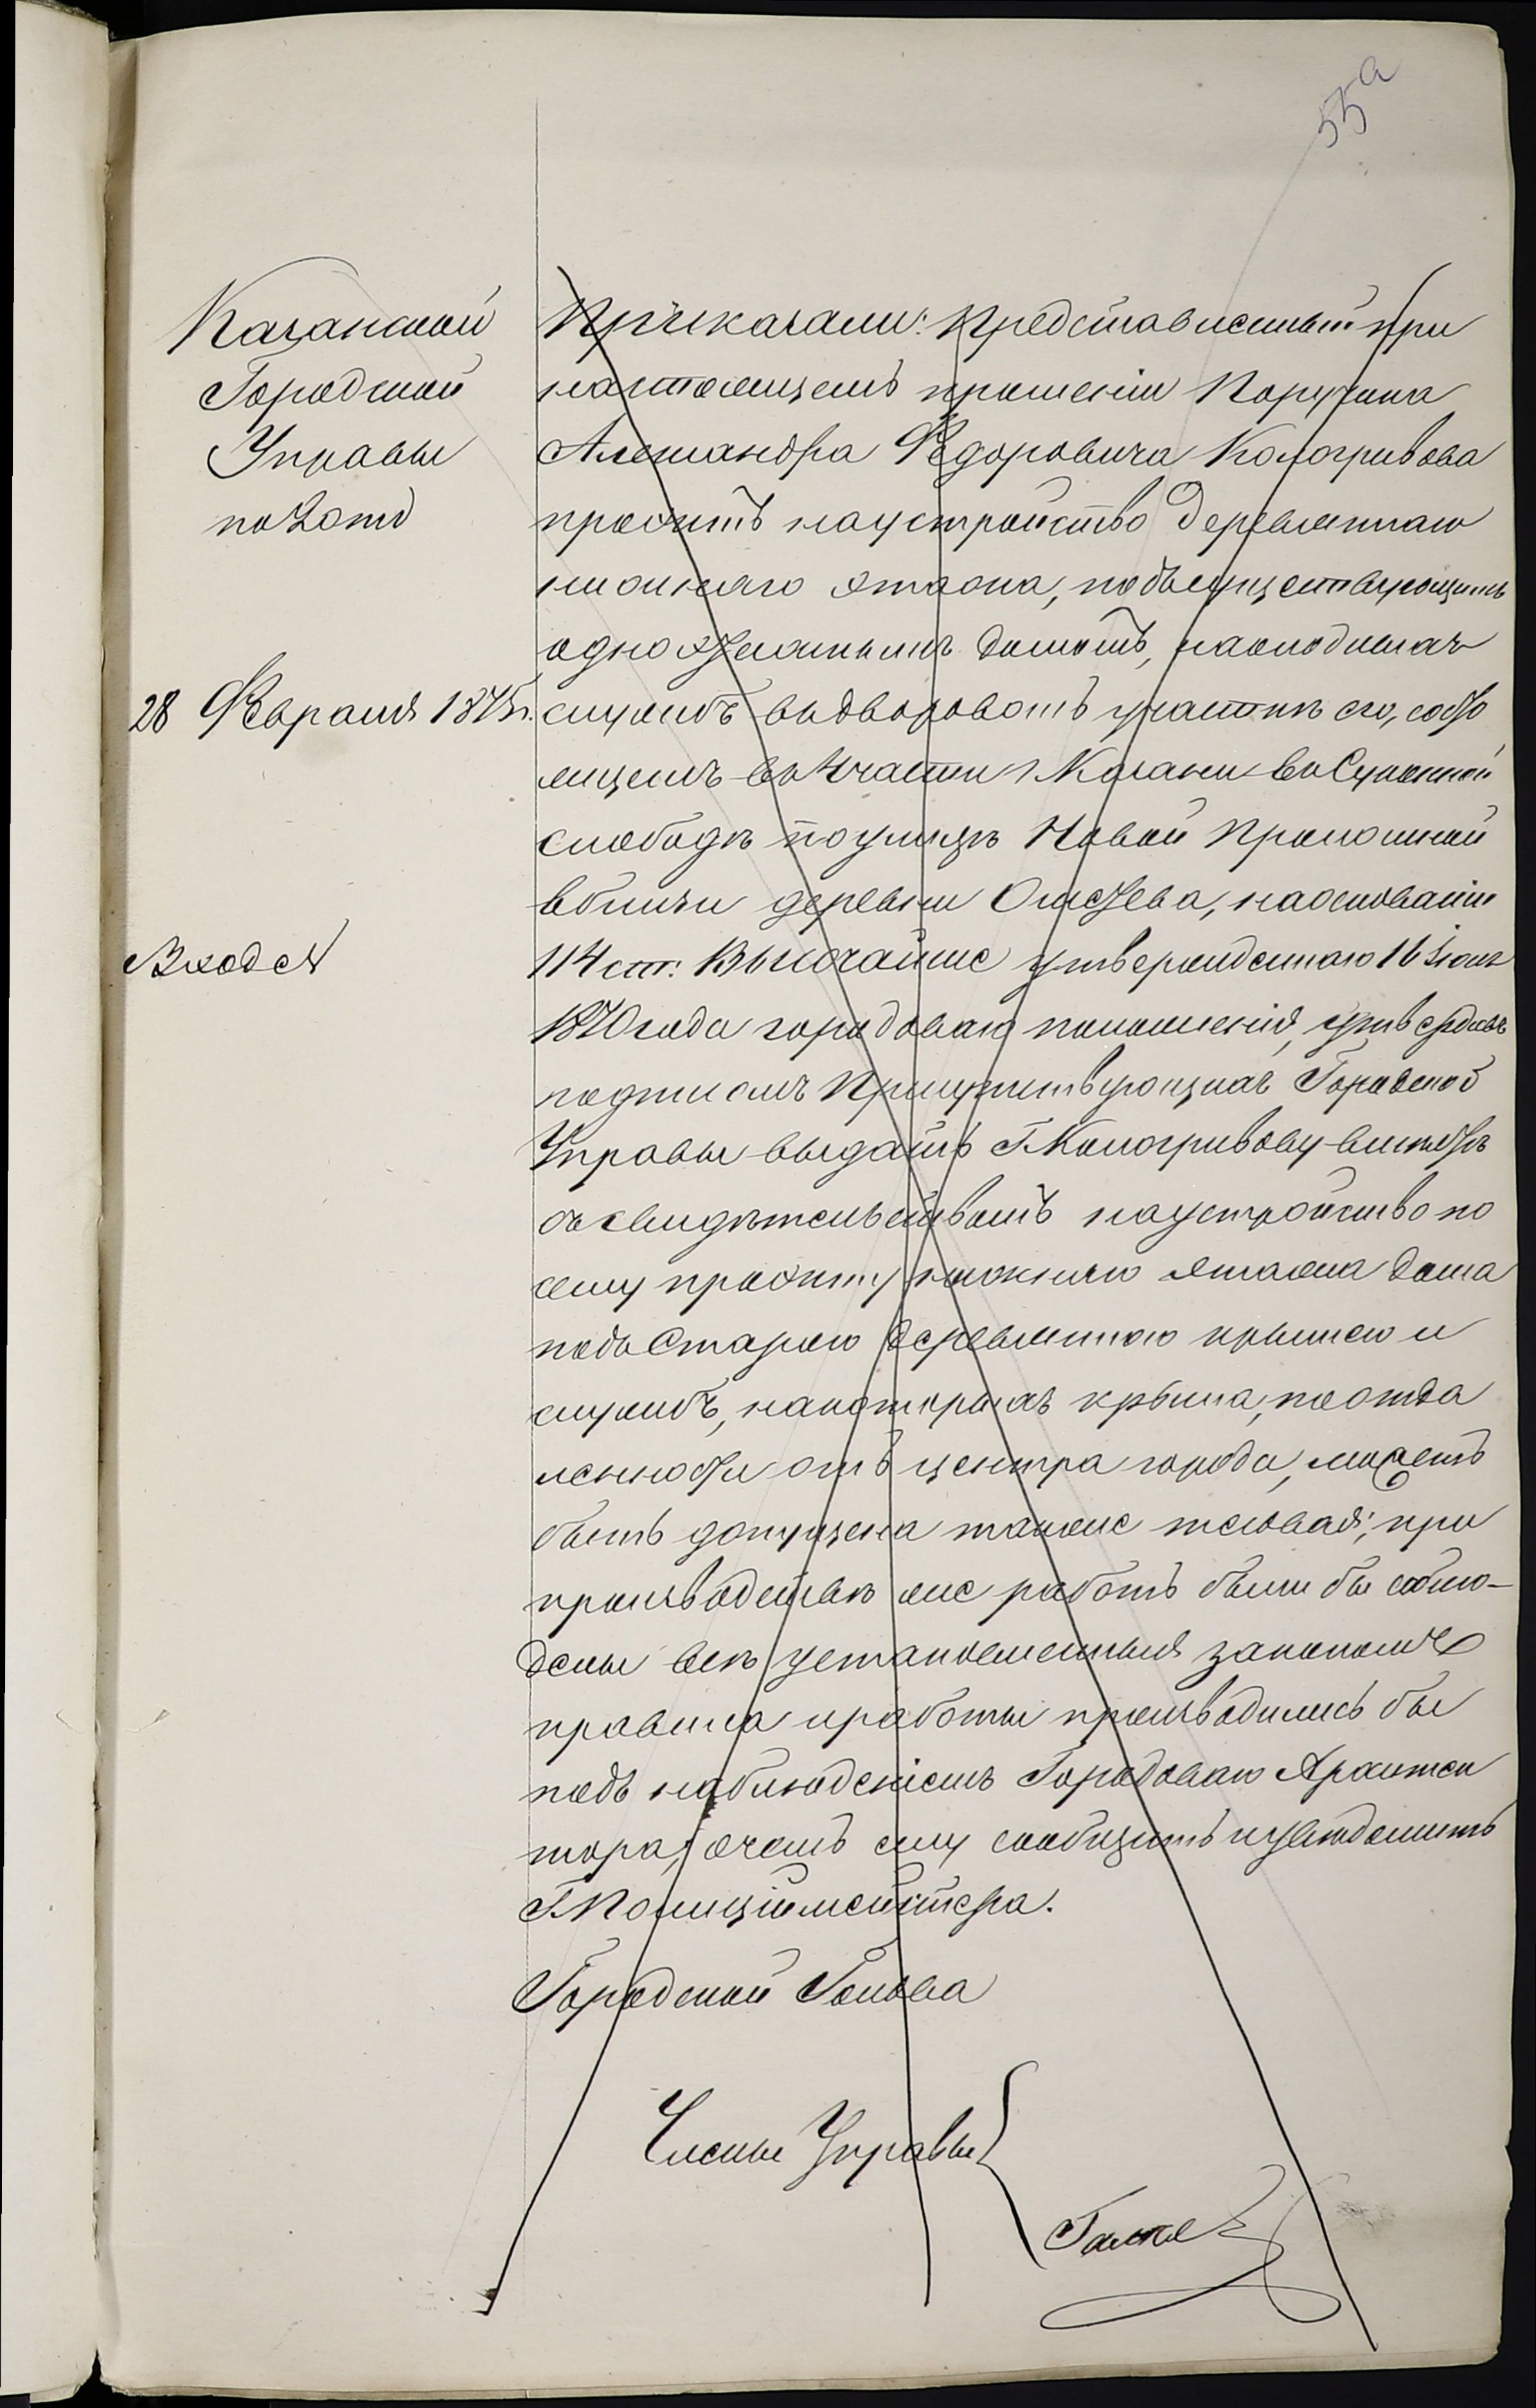 55а
Казанской
Городской
Управы
по 2 отд
28 Февраля 1875 г.
Вход №
Приказали: Представленный при
настоящемъ прошеніи Поручика
Александра Федоровича Кологривова
проэктъ на устройство деревяннаго
нижняго этажа, подъ существующимъ
одноэтажнымъ домомъ, и холодныхъ
службъ въ дворовомъ участкѣ его, состо
ящемъ въ 4 части г Казани въ Суконной
слободѣ по улицѣ Новой Проломной
вблизи деревни, на основаніи
114 ст. Высочайше утвержденнаго 16 Іюня
1870 года городоваго положенія, утвердивъ
подписомъ Присутствующихъ Городской
Управы выдать Г Кологривову вмѣстѣ
съ свидѣтельствомъ на устройство по
сему проэкту нижняго этажа дома
подъ старою деревянною крышею и
службъ, на которыхъ крыша, по отда
ленности отъ центра города, можетъ
быть допущена также тесовая; при
производствѣ же работъ были бы соблю-
дены всѣ установленныя закономъ
правила и работы производились бы
подъ наблюденіемъ Городоваго Архитек
тора, о чемъ ему сообщить и увѣдомить
Г Полиціймейстера.
Городской Голова
Члены Управы